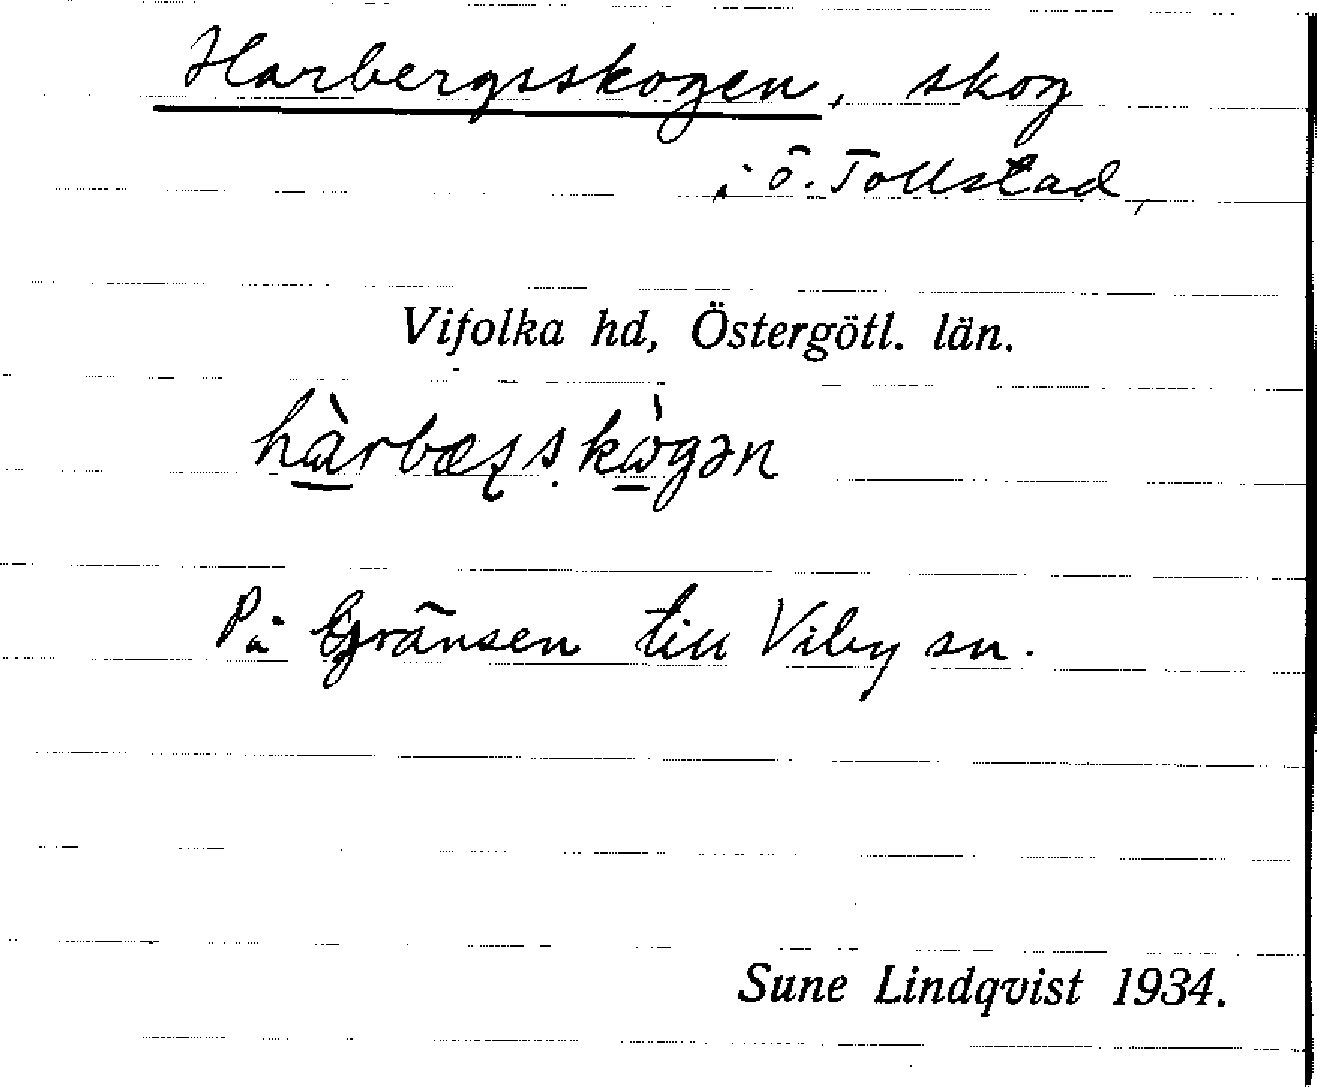 Harbergsskogen, skog
i Ö. Tollstad,
Vifolka hd, Östergötl. län.
hàrbæʂṣkògən
På gränsen till Viby sn.
Sune Lindqvist 1934.